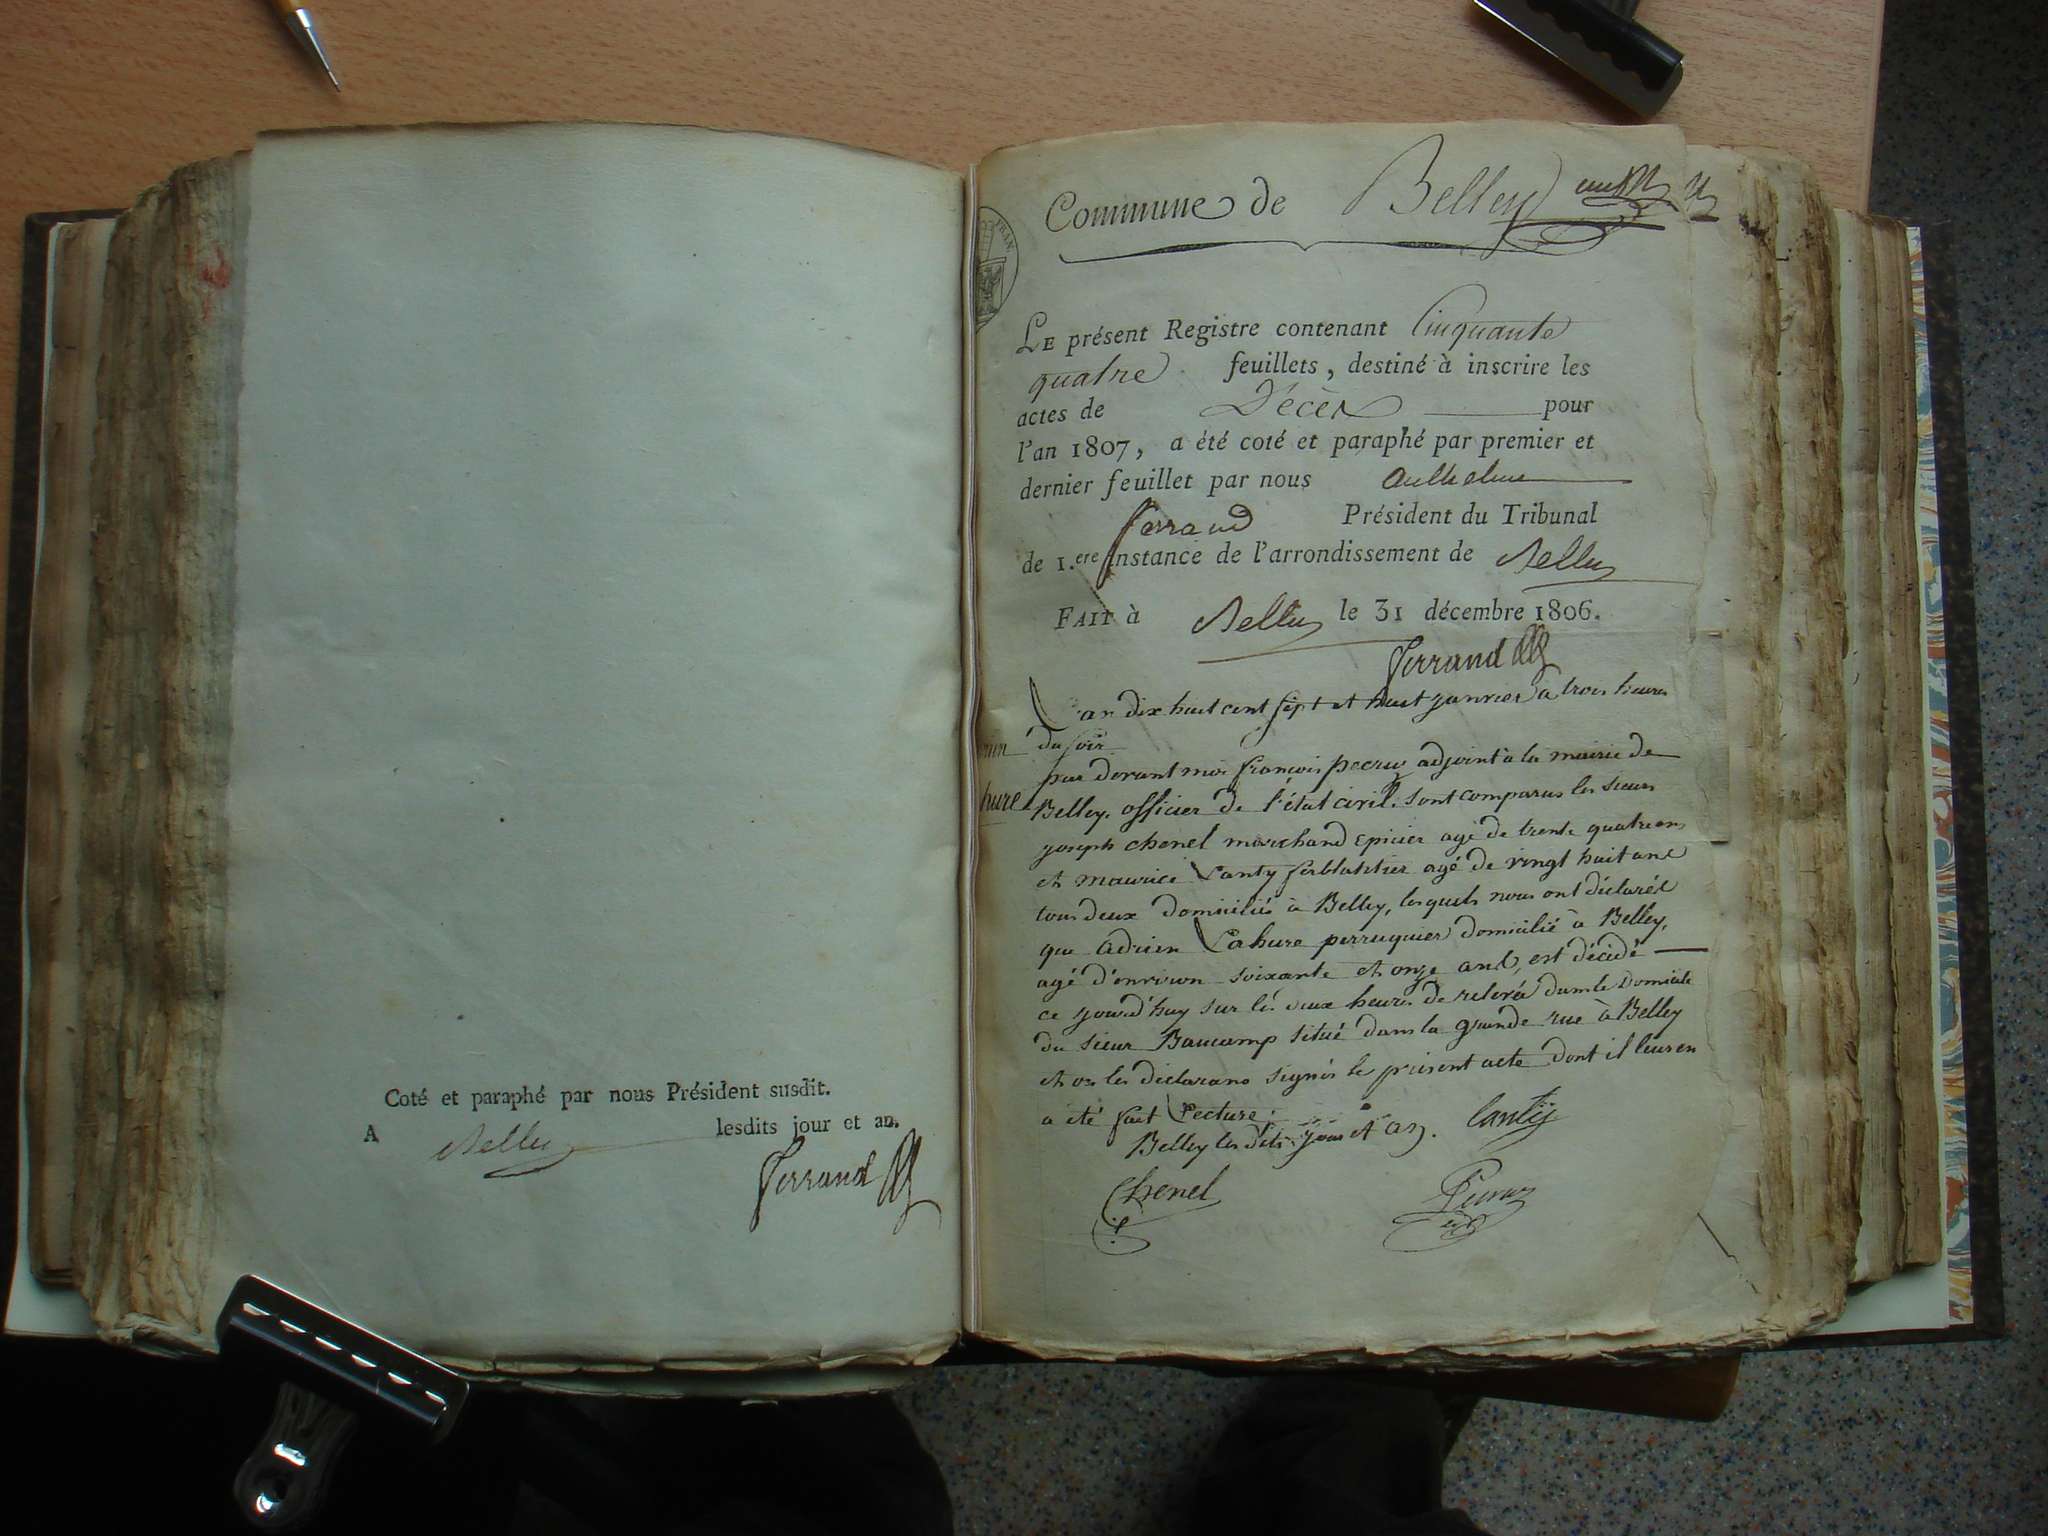 Coté et paraphé par nous Président susdit.
A Belley lesdits jour et an.
Ferrand
Commune de Belley
FRAN
LE présent Registre contenant Cinquante
quatre feuillets, destiné à inscrire les
actes de Décès pour
l'an 1807, a été coté et paraphé par premier et
dernier feuillet par nous Anthelme
ferrand Président du Tribunal
de 1.ere Instance de l'arrondissement de Belley
FAIT à Belley le 31 décembre 1806.
Ferrand
L'an dix huit cent sept et huit janvier à trois heures
du soir
par devant moi françois adjoint à la mairie de
hure
Belley, officier de l'état civil, sont comparus les sieurs
joseph chenel marchand epicier agé de trente quatre ans
et maurice Lanty ferblantier agé de vingt huit ans
tous deux domiciliés à Belley, lesquels nous ont déclarés
que adrien Lahure perruquier domicilié à Belley,
agé d'environ soixante et onze ans, est décédé
ce jourd'huy sur les deux heures de relevée dans le Domicile
du sieur Baucamp situé dans la grande rue à Belley
et on les déclarans signés le présent acte dont il leur en
a été fait Lecture.
Belley les dits jour et an. Lantÿ
Chenel